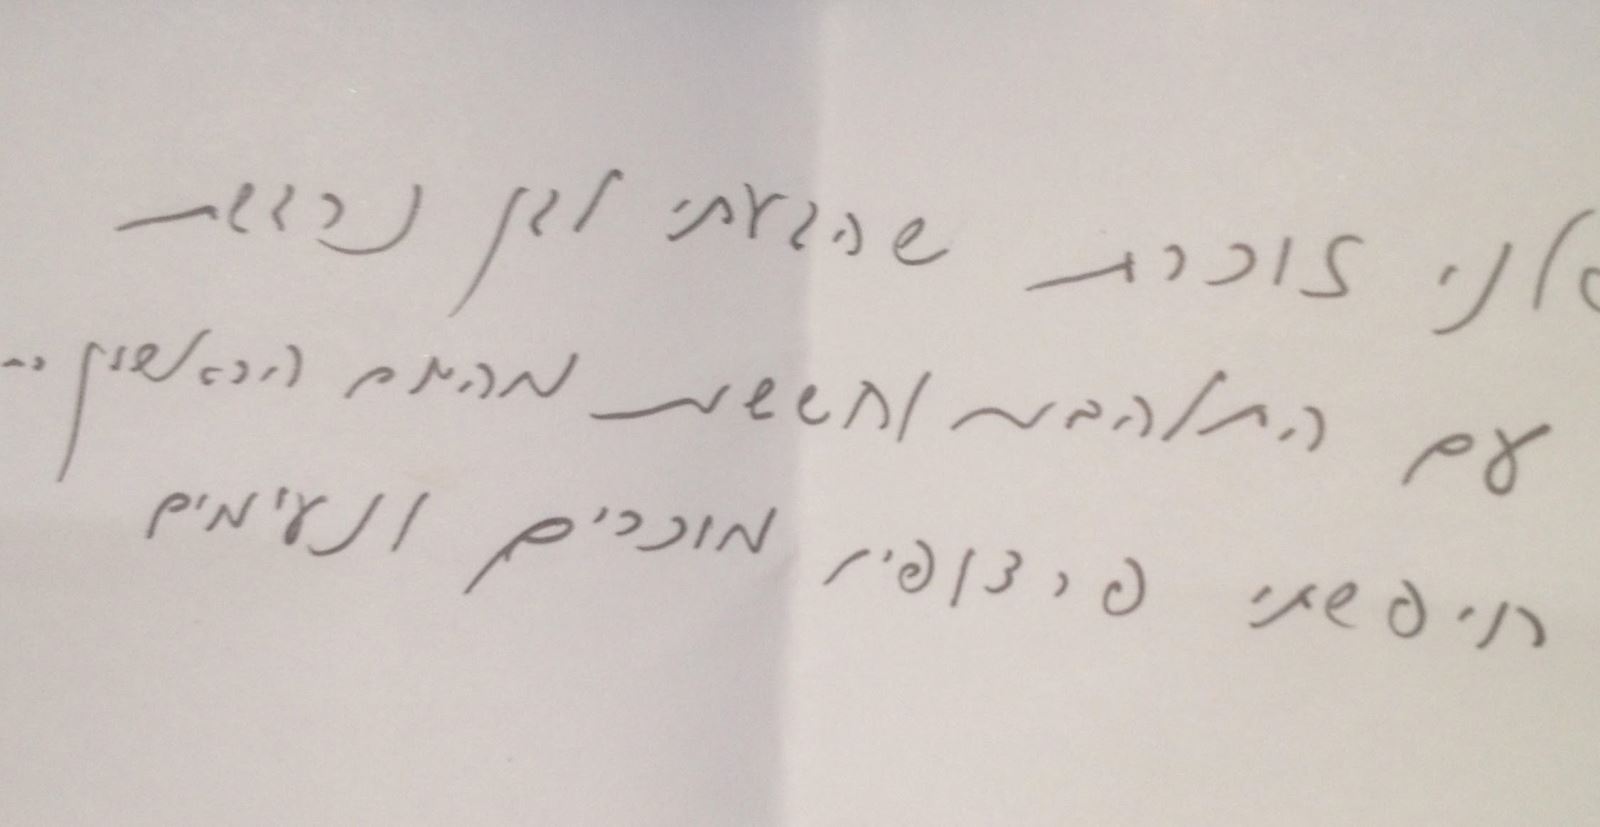 אני זוכרת שהגעתי לגן נרגשת
עם התלהבות וחששות מהיום הראשון ..
חיפשתי פרצופים מוכרים ונעימים